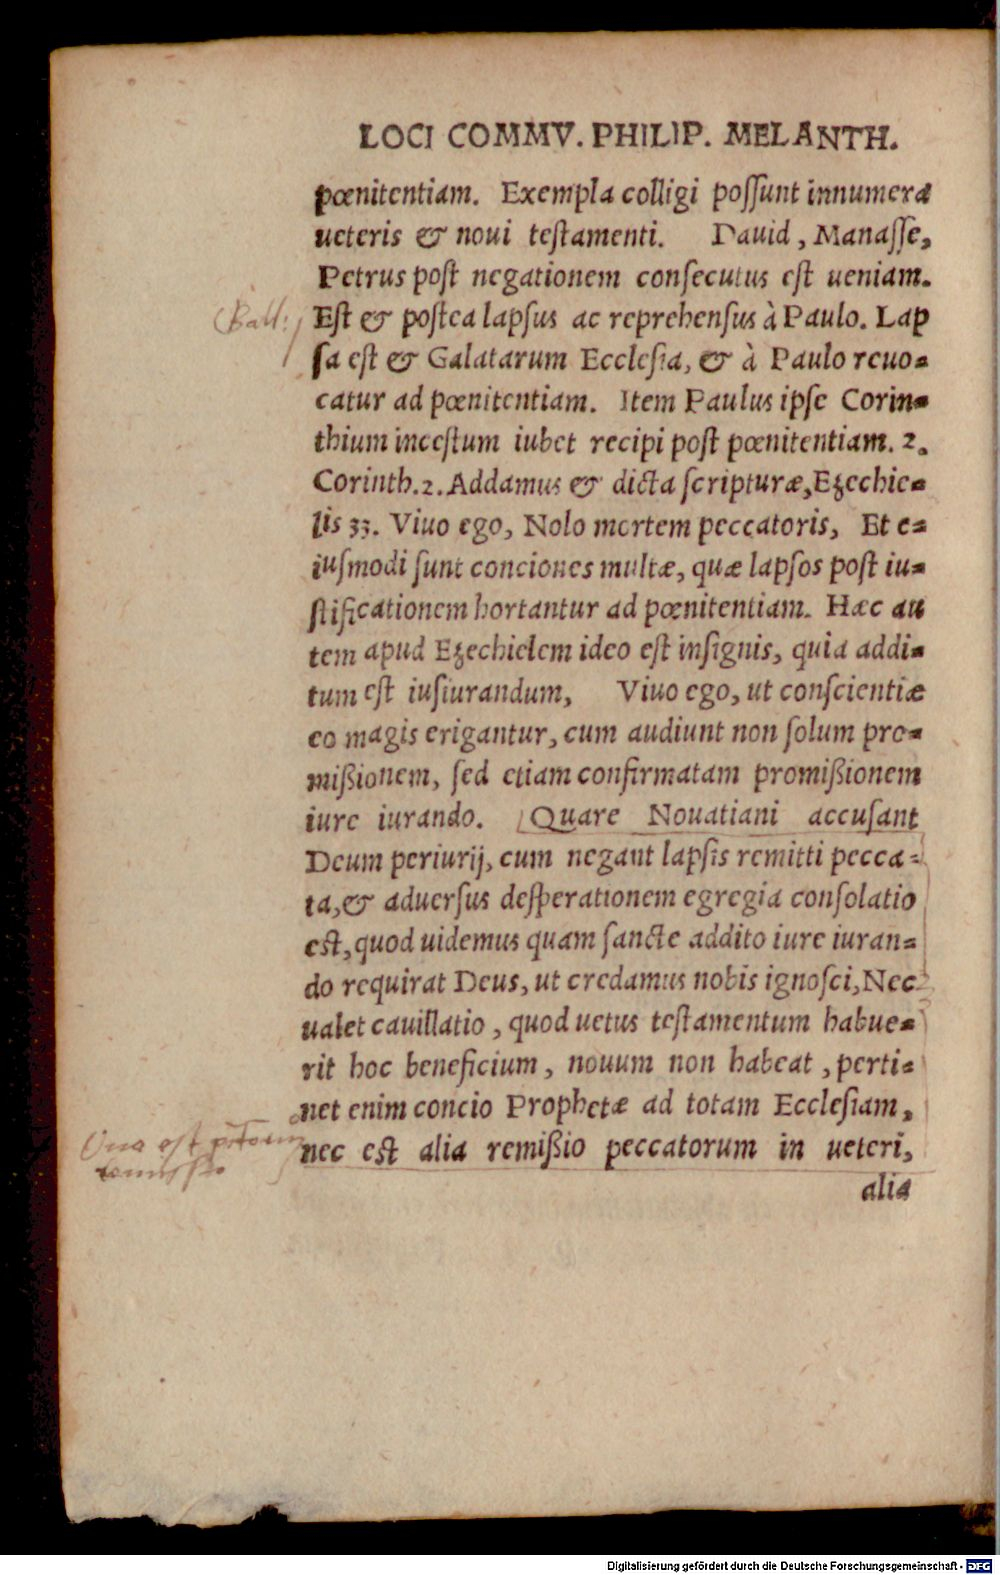 LOCI COMMV. PHILIP. MELANTH.
pœnitentiam. Exempla colligi possunt innumera
ueteris & noui testamenti. Dauid, Manasse,
Petrus post negationem consecutus est ueniam.
Est & postea lapsus ac reprehensus à Paulo. Lap
sa est & Galatarum Ecclesia, & à Paulo reuo-
catur ad pœnitentiam. Item Paulus ipse Corin-
thium incestum iubet recipi post pœnitentiam. 2.
Corinth. 2. Addamus & dicta scripturæ, Ezechie-
lis 33. Viuo ego, Nolo mortem peccatoris, Et e-
iusmodi sunt conciones multæ, quæ lapsos post iu-
stificationem hortantur ad pœnitentiam. Hæc au
tem apud Ezechielem ideo est insignis, quia addi-
tum est iusiurandum, Viuo ego, ut conscientiæ
eo magis erigantur, cum audiunt non solum pro-
mißionem, sed etiam confirmatam promißionem
iure iurando. Quare Nouatiani accusant
Deum periurij, cum negant lapsis remitti pecca-
ta, & aduersus desperationem egregia consolatio
est, quod uidemus quam sancte addito iure iuran-
do requirat Deus, ut credamus nobis ignosci, Nec
ualet cauillatio, quod uetus testamentum habue-
rit hoc beneficium, nouum non habeat, perti-
net enim concio Prophetæ ad totam Ecclesiam,
Vna est
remissio
nec est alia remißio peccatorum in ueteri,
alia
Digitalisierung gefördert durch die Deutsche Forschungsgemeinschaft - DFG